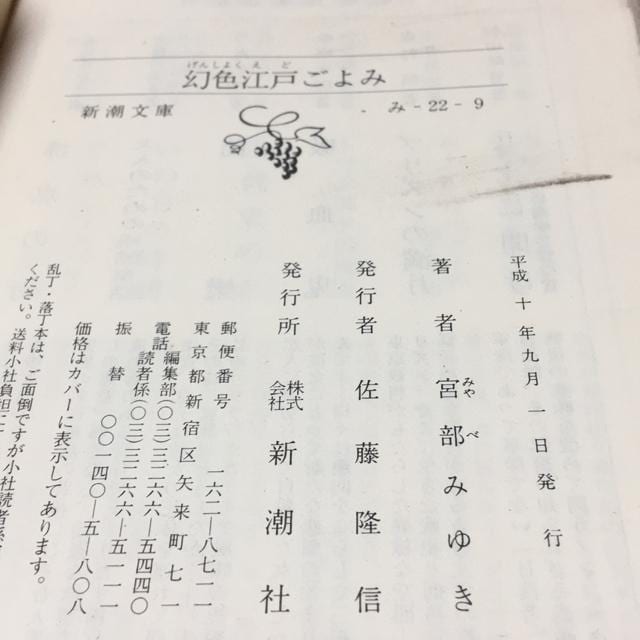 幻色江戸ごよみ
げんしょくえど
新潮文庫 み-22-9
平成十年九月一日発行
著者 宮部みゆき
みやべ
発行者 佐藤隆信
発行所 株式会社 新潮社
郵便番号 一六二―八七一一
東京都新宿区矢来町七一
電話 編集部(〇三)三二六六―五四四〇
読者係(〇三)三二六六―五一一一
振替 〇〇一四〇―五―八〇八
価格はカバーに表示してあります。
乱丁・落丁本は、ご面倒ですが小社読者係
ください。送料小社負担に